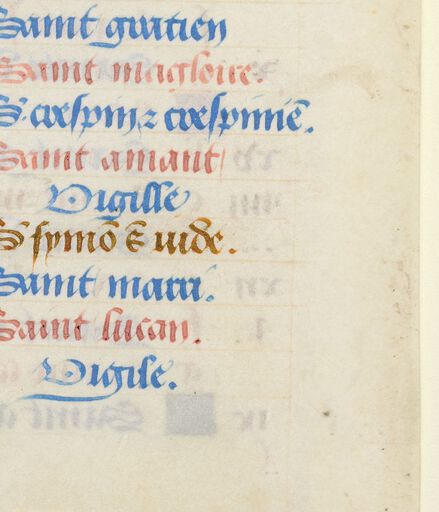 Saint gratien
Saint magloire.
S. crespin, z crespinie̅.
Saint amant
Vigille
S symo̅ & iude.
Saint marri.
Saint lucan.
Vigile.